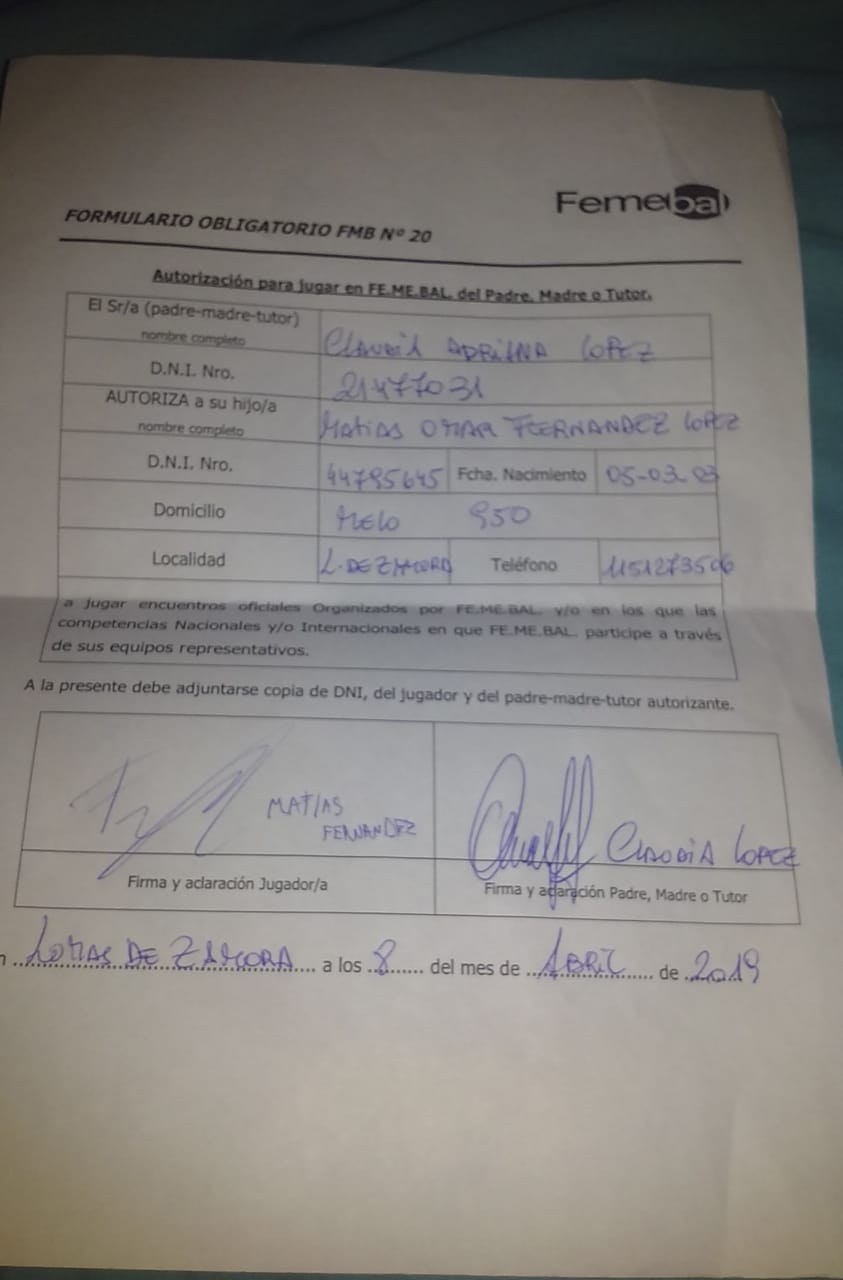 Femebal
FORMULARIO OBLIGATORIO FMB Nº 20
Autorización para jugar en FE.ME.BAL. del Padre, Madre o Tutor.
El Sr/a (padre-madre-tutor)
nombre completo
CLAUDIA ADRIANA LOPEZ
D.N.I. Nro.
21477031
AUTORIZA a su hijo/a
nombre completo
MATIAS OMAR FERNANDEZ LOPEZ
D.N.I. Nro. 44795645 Fcha. Nacimiento 05-03-03
Domicilio MELO 950
Localidad L. DE ZAMORA Teléfono 1151273506
a jugar encuentros oficiales Organizados por FE.ME.BAL. y/o en los que las
competencias Nacionales y/o Internacionales en que FE.ME.BAL. participe a través
de sus equipos representativos.
A la presente debe adjuntarse copia de DNI, del jugador y del padre-madre-tutor autorizante.
MATIAS
FERNANDEZ
CLAUDIA LOPEZ
Firma y aclaración Jugador/a
Firma y aclaración Padre, Madre o Tutor
n ..LOMAS DE ZAMORA.... a los ..8...... del mes de ..ABRIL..... de ..2019